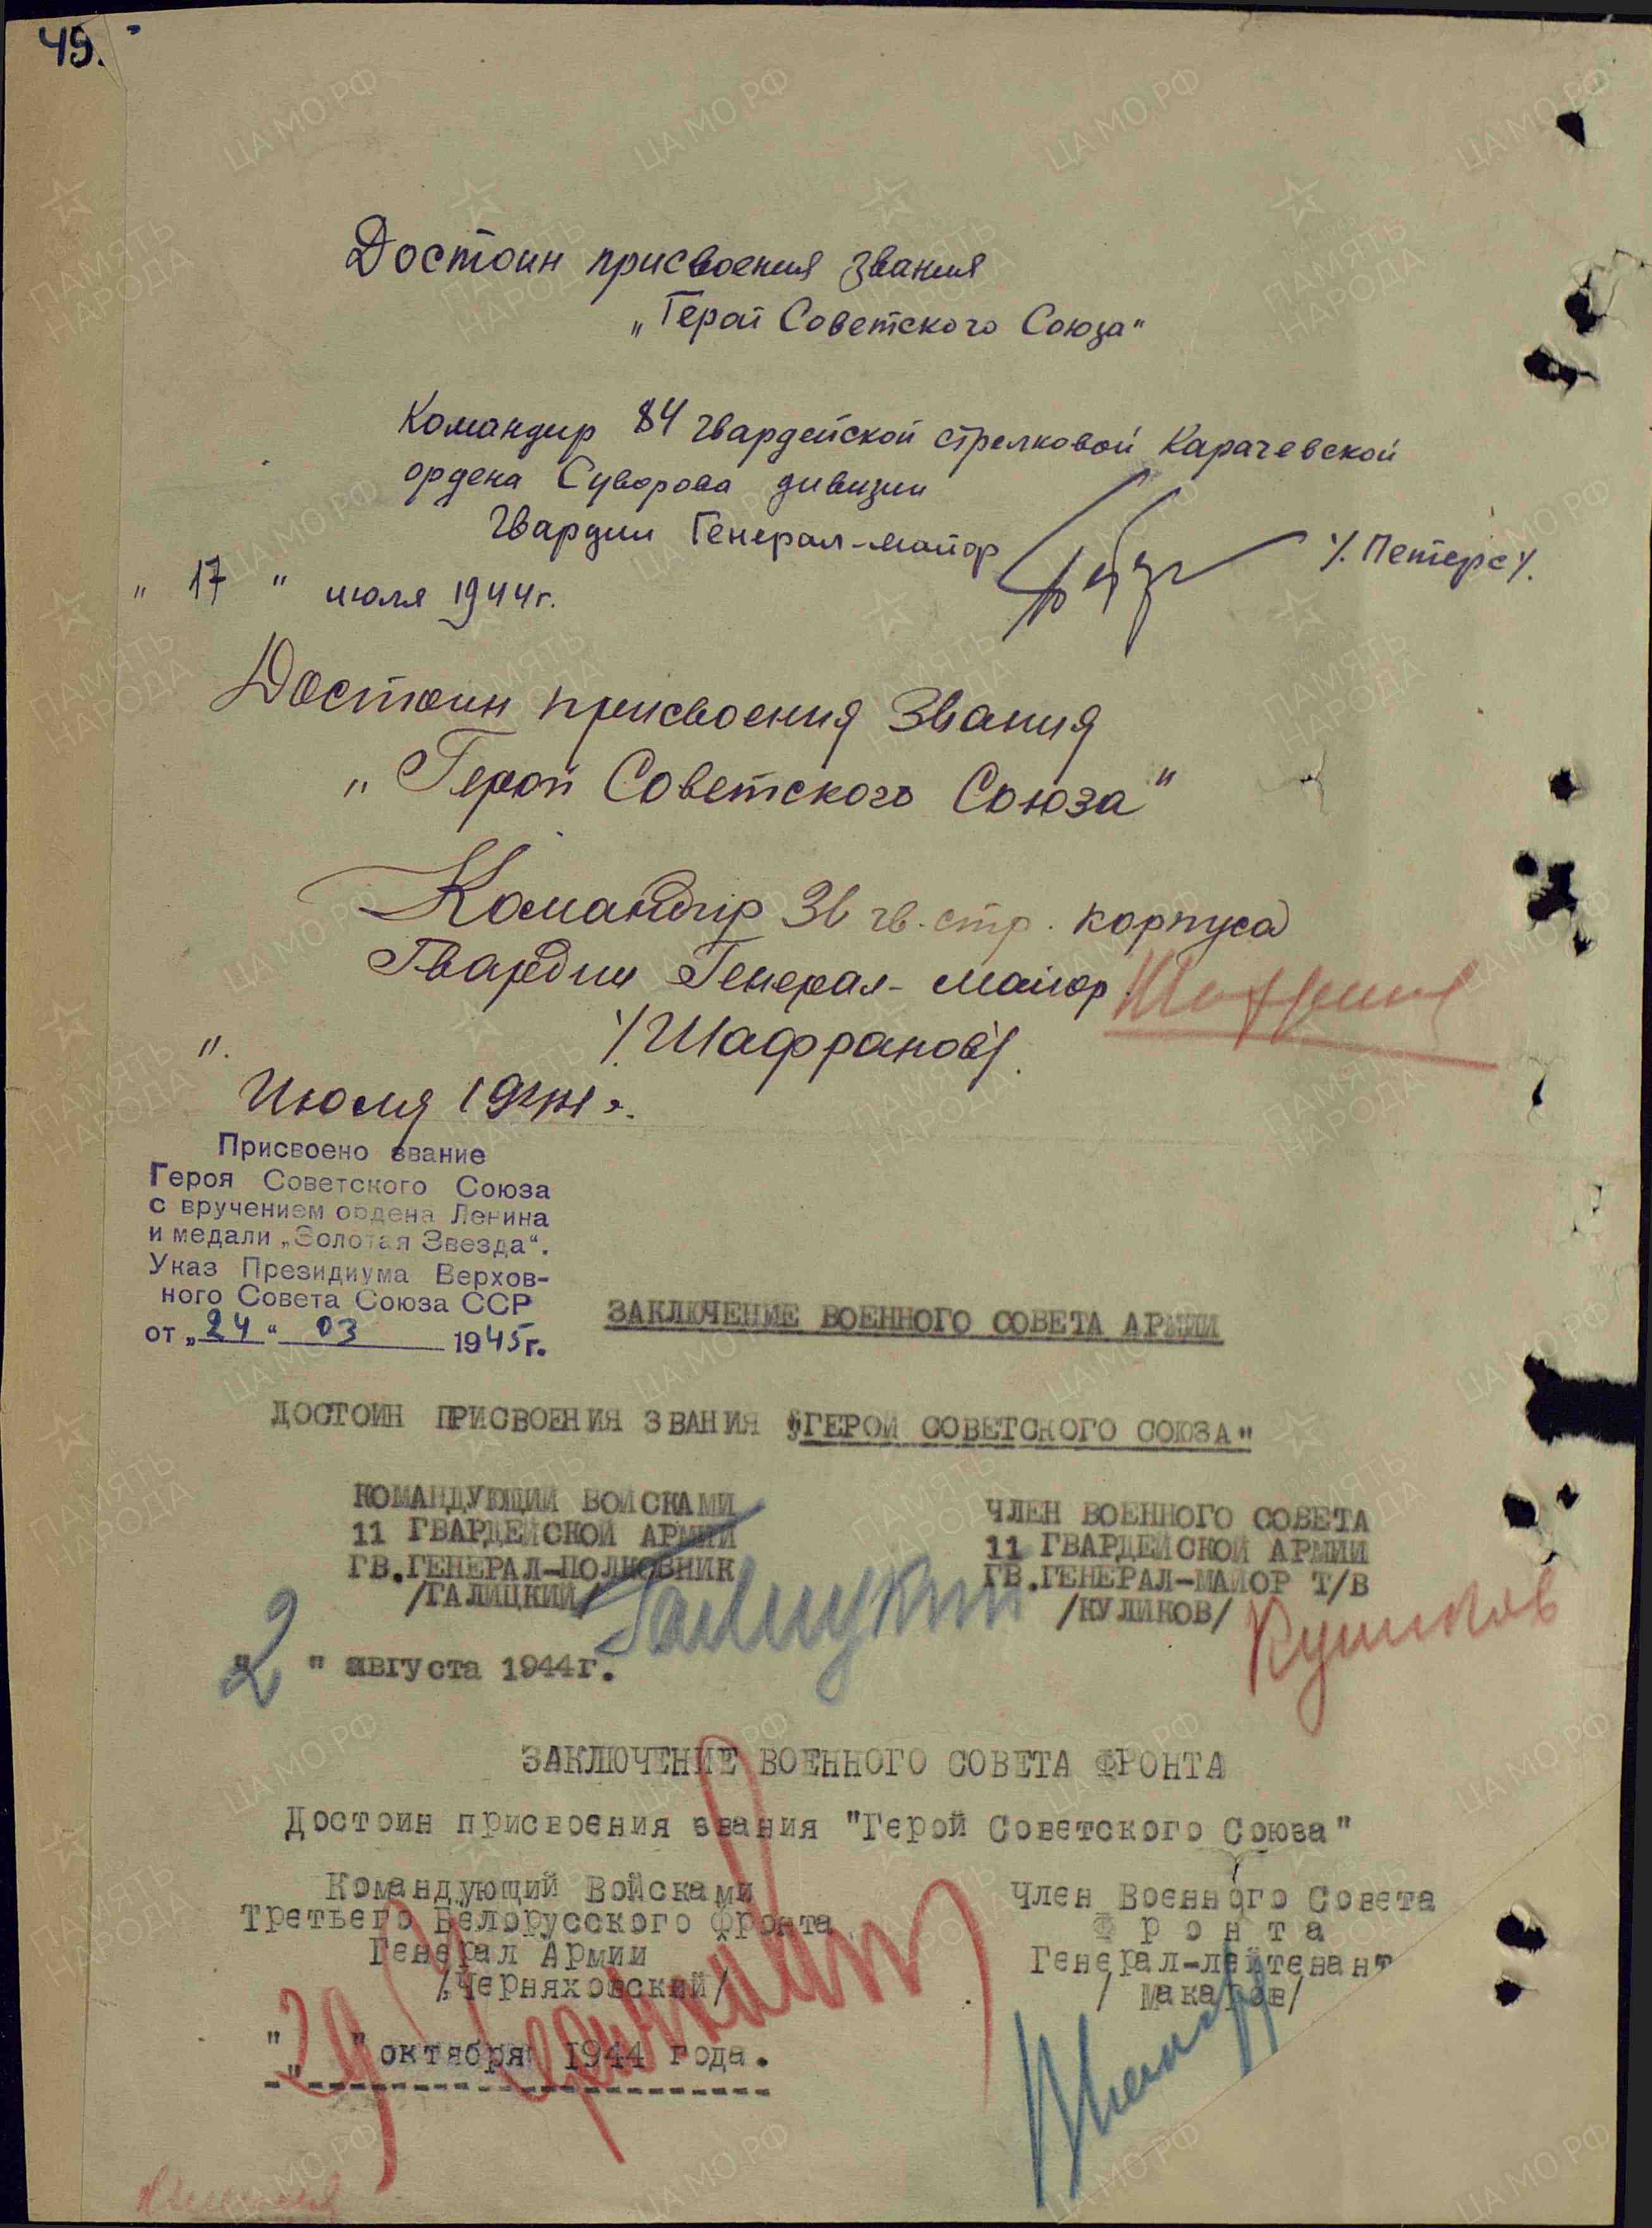 49.
Достоин присвоения звания
„Герой Советского Союза"
Командир 84 гвардейской стрелковой Карачевской
ордена Суворова дивизии
Гвардии Генерал-майор /. Петерс /.
" 17 " июля 1944г.
Достоин присвоения Звания
„Герой Советского Союза"
Командир 36 гв. стр. корпуса
Гвардии Генерал-майор
/Шафранов/.
".
Июля 1944 г.
Присвоено звание
Героя Советского Союза
с вручением ордена Ленина
и медали „Золотая Звезда".
Указ Президиума Верхов-
ного Совета Союза ССР
от „24" 03 1945г.
ЗАКЛЮЧЕНИЕ ВОЕННОГО СОВЕТА АРМИИ
ДОСТОИН ПРИСВОЕНИЯ ЗВАНИЯ "ГЕРОЙ СОВЕТСКОГО СОЮЗА"
КОМАНДУЮЩИЙ ВОЙСКАМИ
11 ГВАРДЕЙСКОЙ АРМИИ
ГВ.ГЕНЕРАЛ-ПОЛКОВНИК
/ГАЛИЦКИЙ/ Галицкий
ЧЛЕН ВОЕННОГО СОВЕТА
11 ГВАРДЕЙСКОЙ АРМИИ
ГВ.ГЕНЕРАЛ-МАЙОР Т/В
/КУЛИКОВ/ Куликов
"2" августа 1944г.
ЗАКЛЮЧЕНИЕ ВОЕННОГО СОВЕТА ФРОНТА
Достоин присвоения звания "Герой Советского Союза"
Командующий Войсками
Третьего Белорусского Фронта
Генерал Армии
/Черняховский/
Член Военного Совета
Фронта
Генерал-лейтенант
/ Макаров/
"29" октября 1944 года.
ЦА МО РФ
ПАМЯТЬ НАРОДА